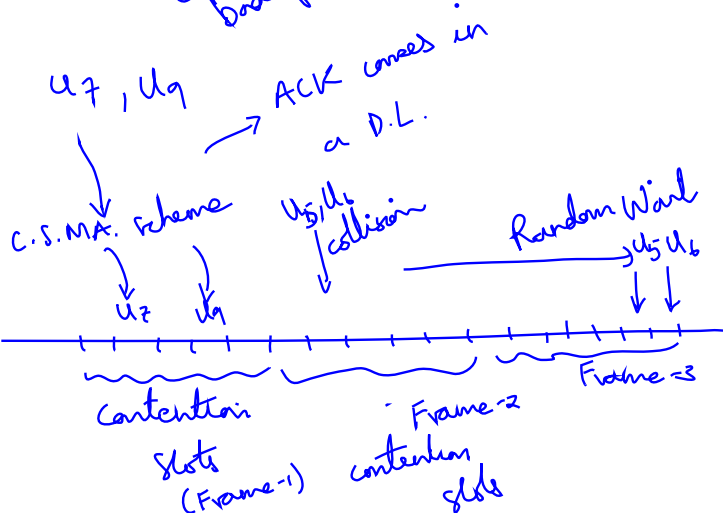 U7, U9
ACK comes in
a D.L.
C.S.M.A. scheme
U5, U6
collision
Random Wait
U5 U6
U7
U9
Contention
slots
(Frame-1)
Frame-2
contention
slots
Frame-3